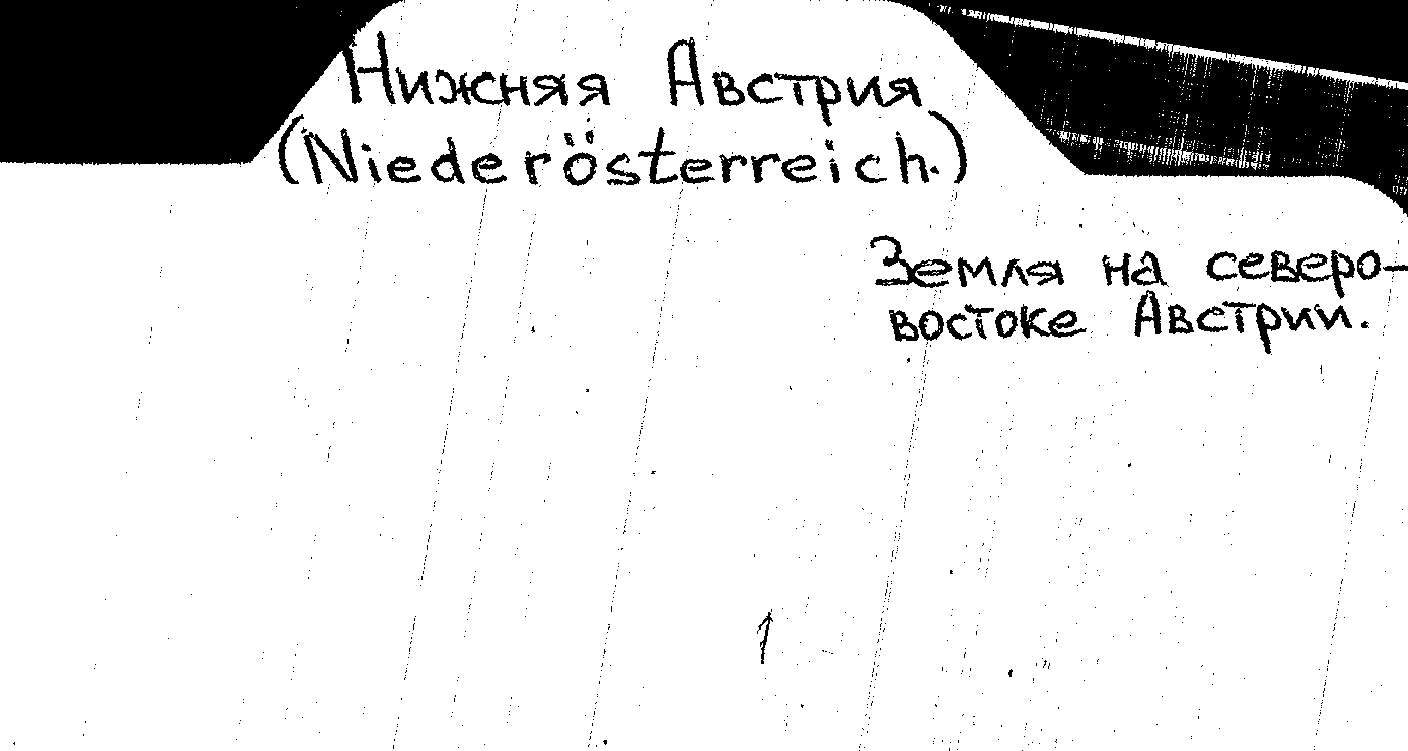 Нижняя Австрия
(Niederösterreich.)
Земля на северо-
востоке Австрии.